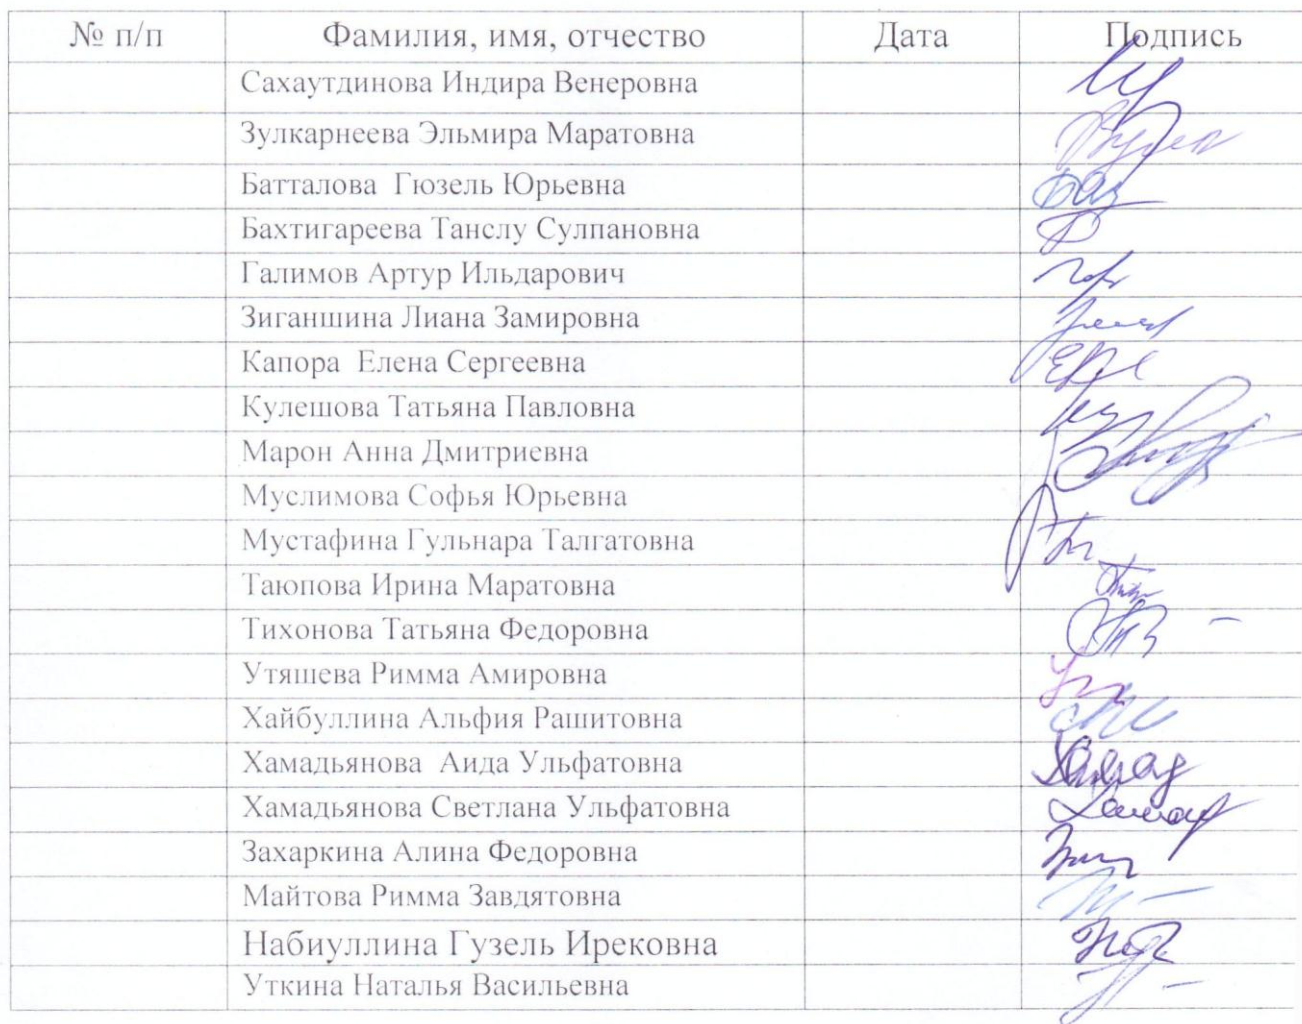 № п/п Фамилия, имя, отчество Дата Подпись
Сахаутдинова Индира Венеровна
Зулкарнеева Эльмира Маратовна
Батталова Гюзель Юрьевна
Бахтигареева Танслу Сулпановна
Галимов Артур Ильдарович
Зиганшина Лиана Замировна
Капора Елена Сергеевна
Кулешова Татьяна Павловна
Марон Анна Дмитриевна
Муслимова Софья Юрьевна
Мустафина Гульнара Талгатовна
Таюпова Ирина Маратовна
Тихонова Татьяна Федоровна
Утяшева Римма Амировна
Хайбуллина Альфия Рашитовна
Хамадьянова Аида Ульфатовна
Хамадьянова Светлана Ульфатовна
Захаркина Алина Федоровна
Майтова Римма Завдятовна
Набиуллина Гузель Ирековна
Уткина Наталья Васильевна